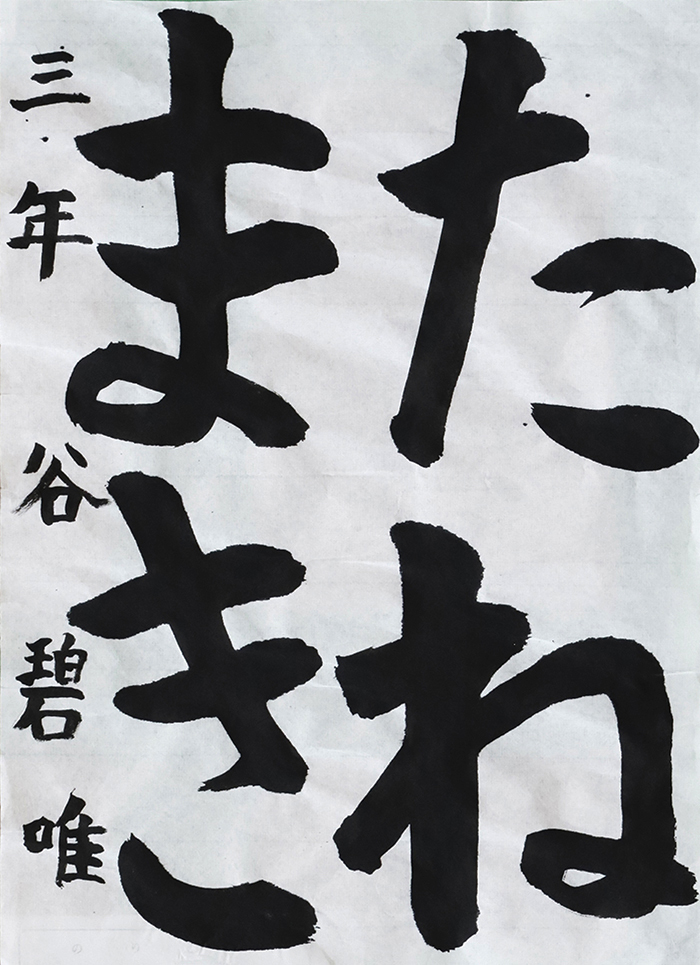 たね
まき
三年 谷碧唯